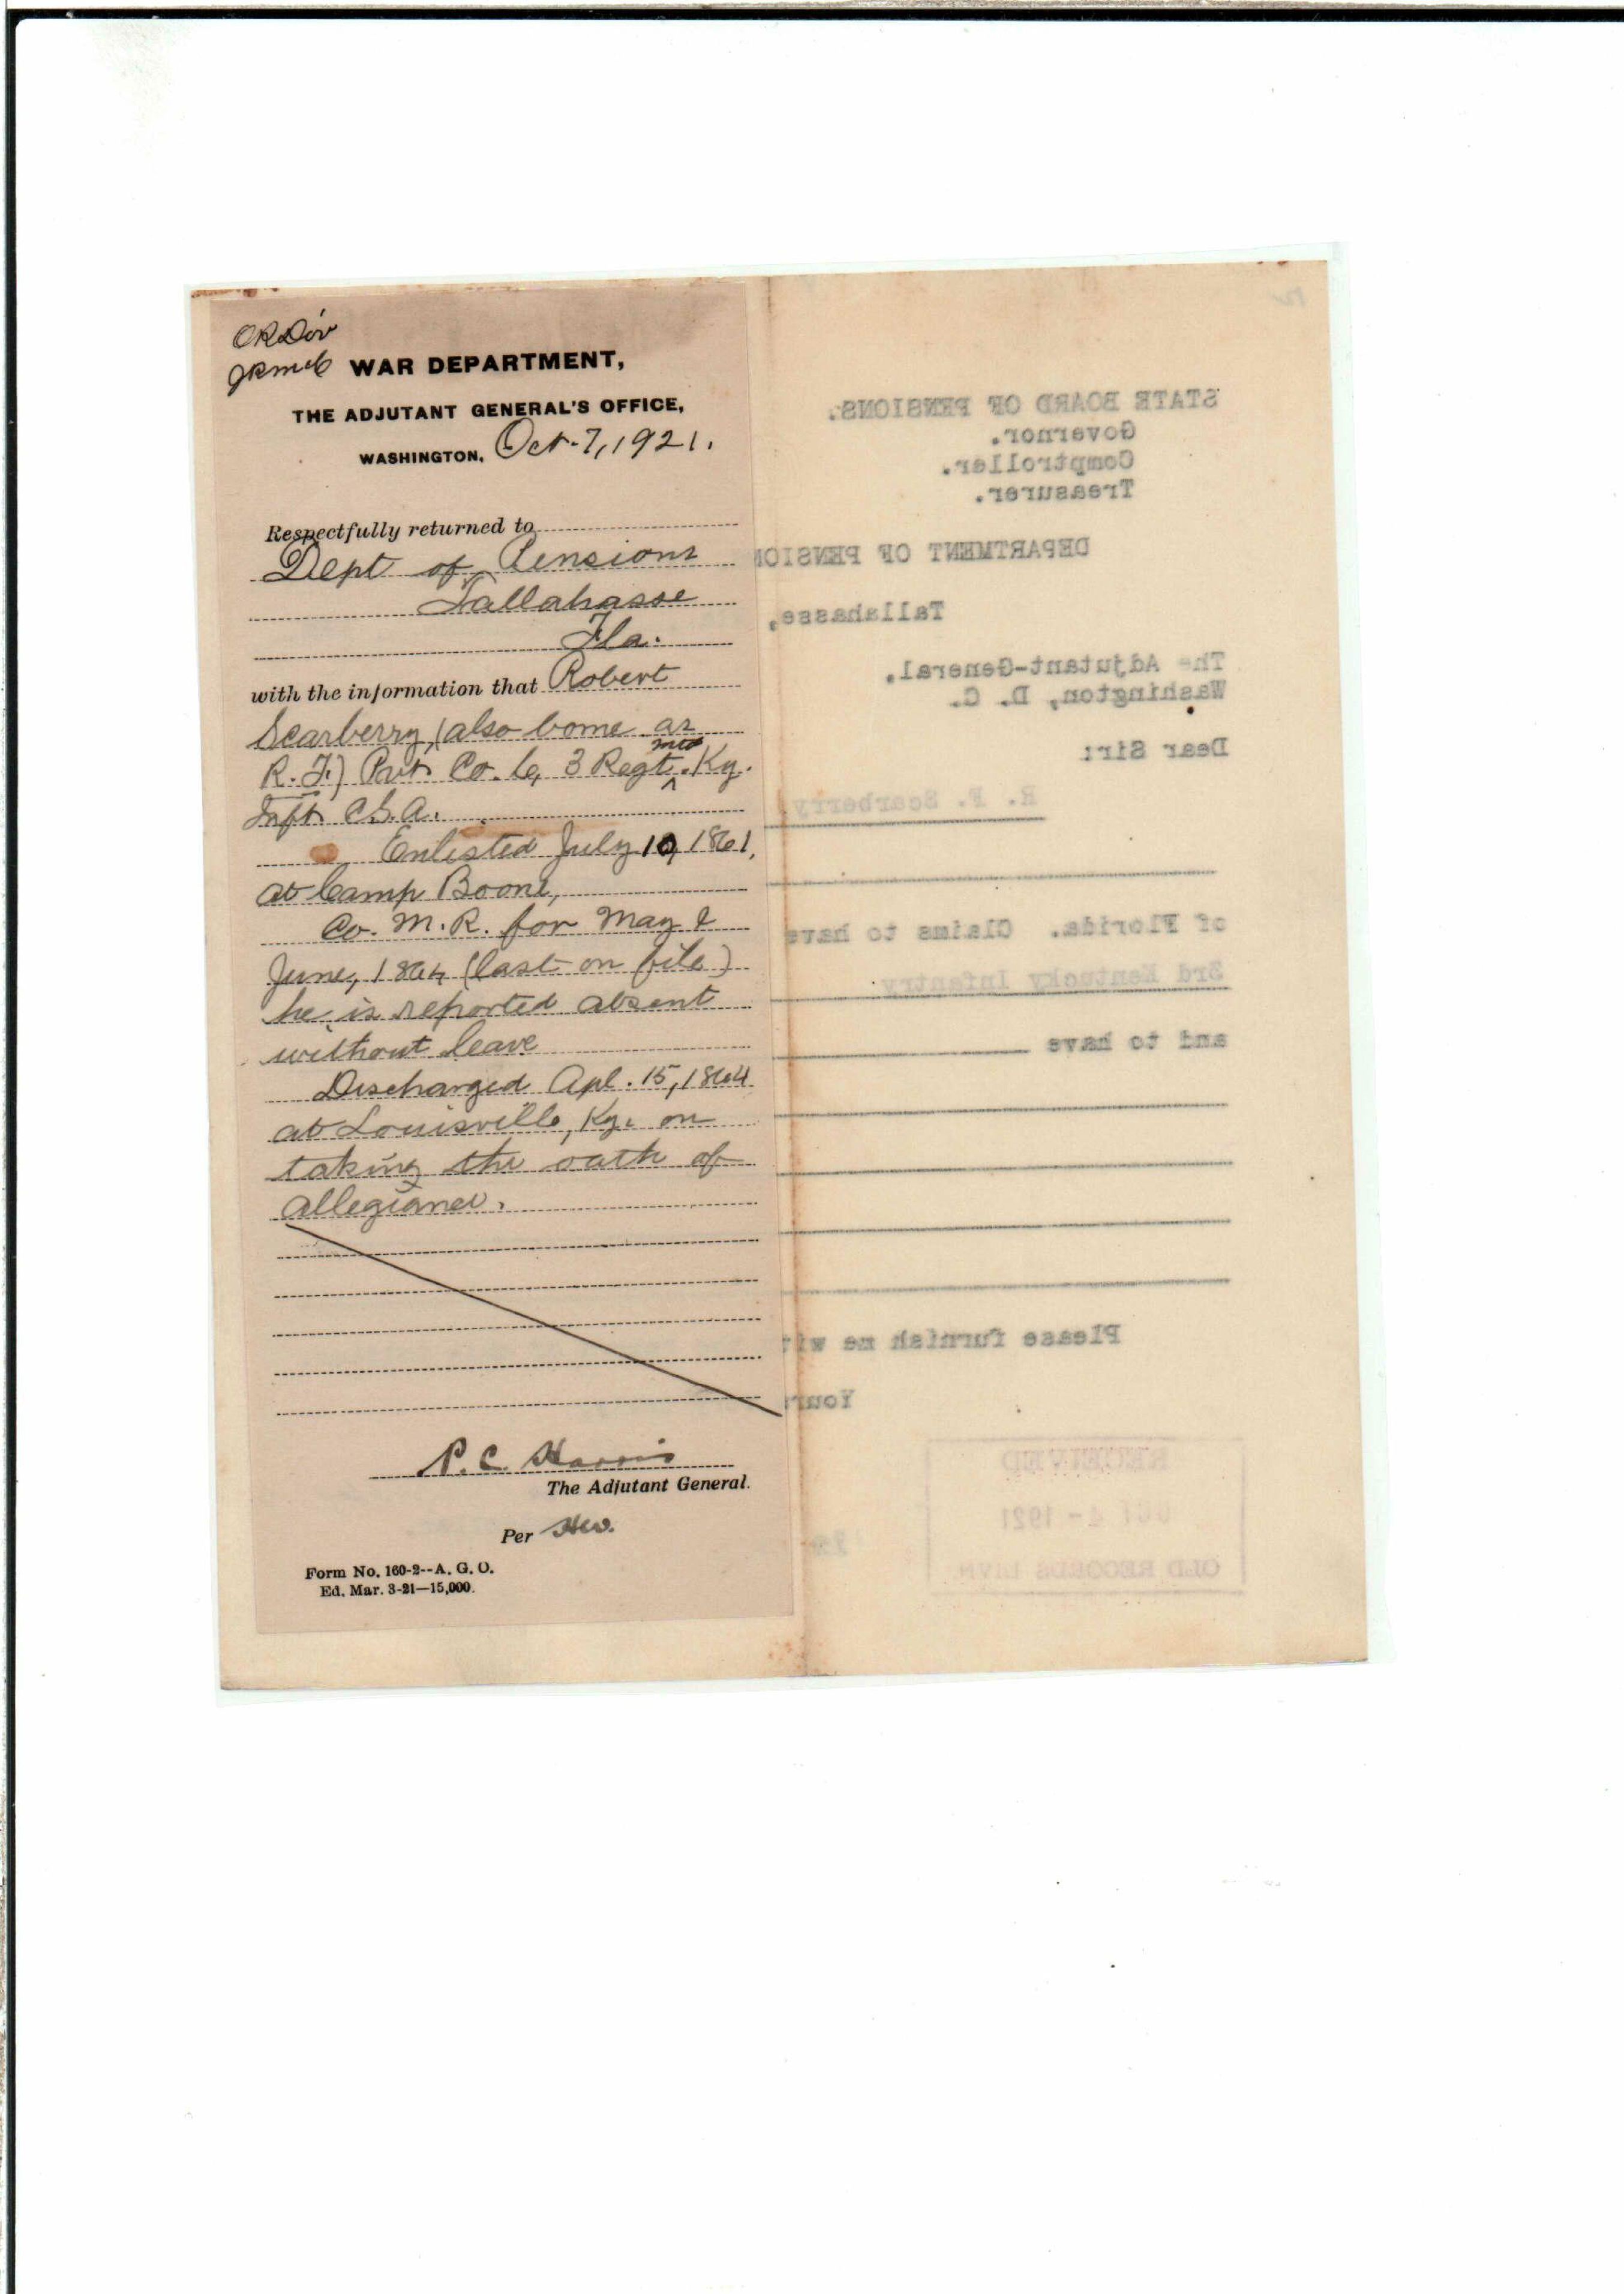 OR Div
JRMcC WAR DEPARTMENT,
THE ADJUTANT GENERAL'S OFFICE,
WASHINGTON, Oct. 7, 1921.
Respectfully returned to
Dept of Pensions
Tallahasse
Fla.
with the information that Robert
Scarberry, (also borne as
R. F.) Pvt. Co. C, 3 Regt. mtd Ky.
Inft C.S.A.
Enlisted July 10, 1861,
at Camp Boone,
Co. M. R. for May &
June, 1864 (last on file)
he is reported absent
without leave
Discharged Apl. 15, 1864
at Louisville, Ky. on
taking the oath of
allegiance.
P. C. Harris
The Adjutant General.
Per
Form No. 160-2--A. G. O.
Ed. Mar. 3-21—15,000.
STATE BOARD OF PENSIONS.
Governor.
Comptroller.
Treasurer.
DEPARTMENT OF PENSION
Tallahasse,
The Adjutant-General,
Washington, D. C.
Dear Sir:
R. F. Scarberry
of Florida. Claims to have
3rd Kentucky Infantry
and to have
Please furnish me wit
Your
RECEIVED
OCT 4 - 1921
OLD RECORDS DIVN